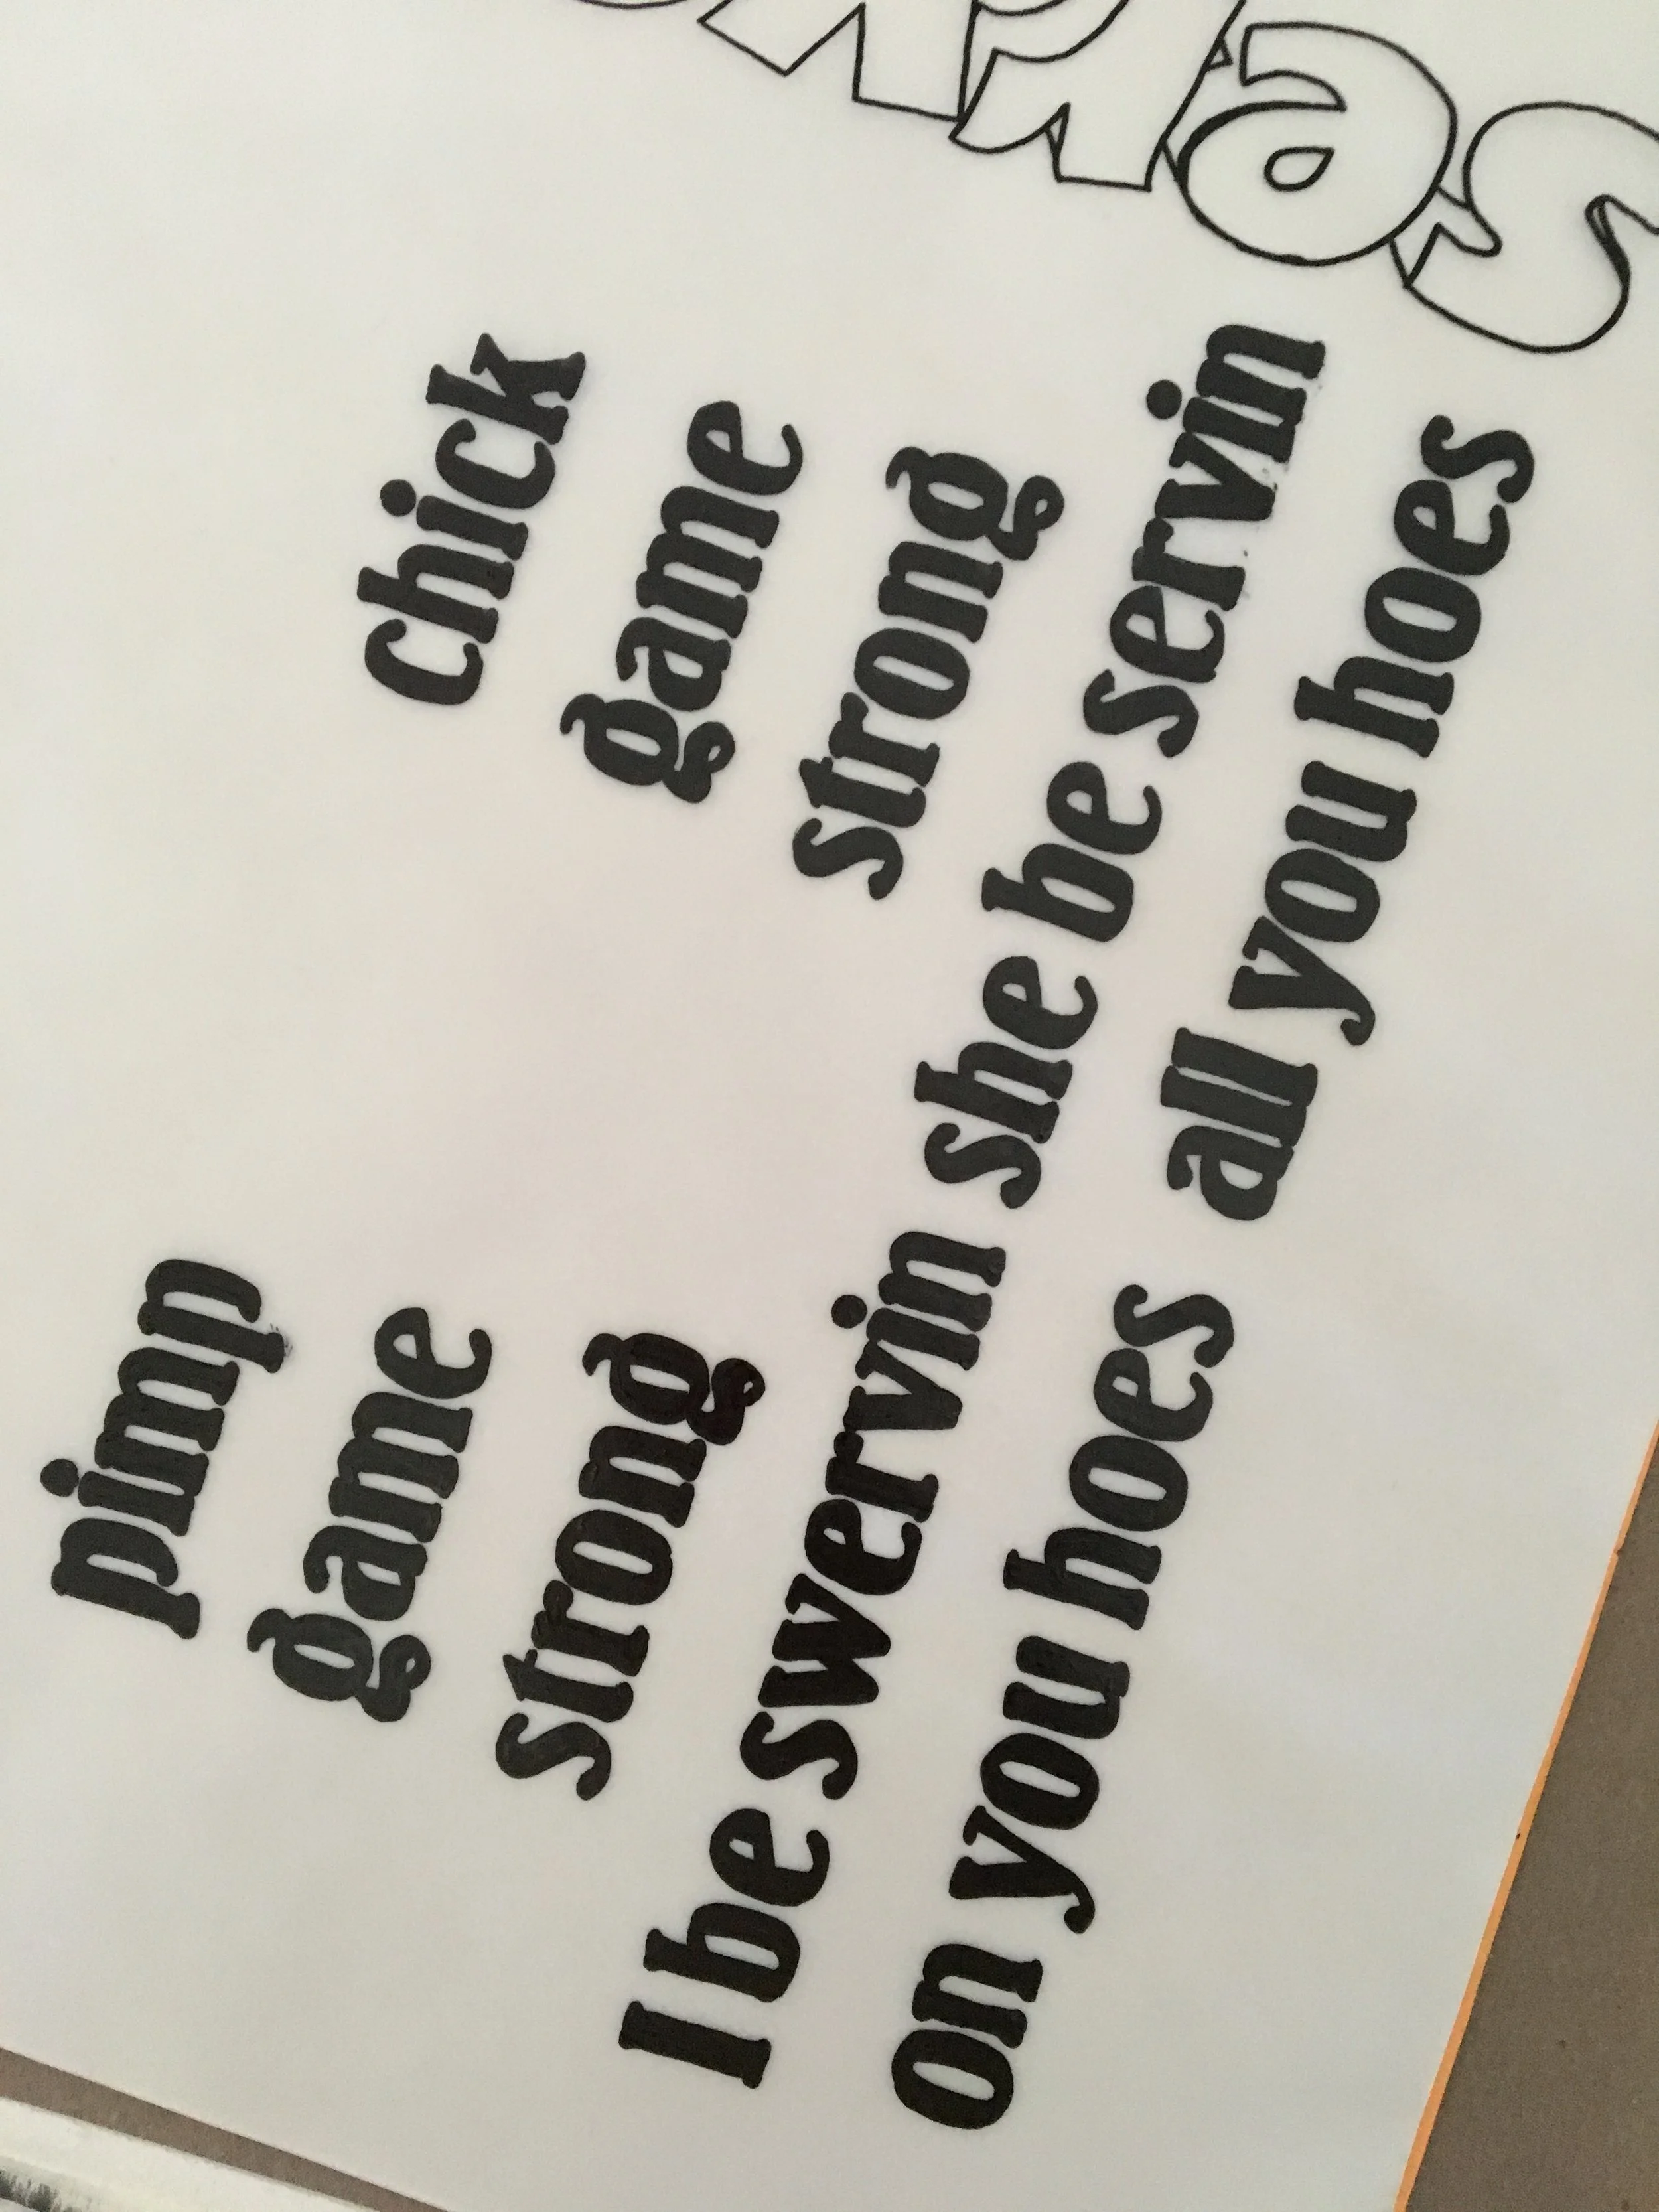 pimp
game
strong
I be swervin
on you hoes
chick
game
strong
she be servin
all you hoes